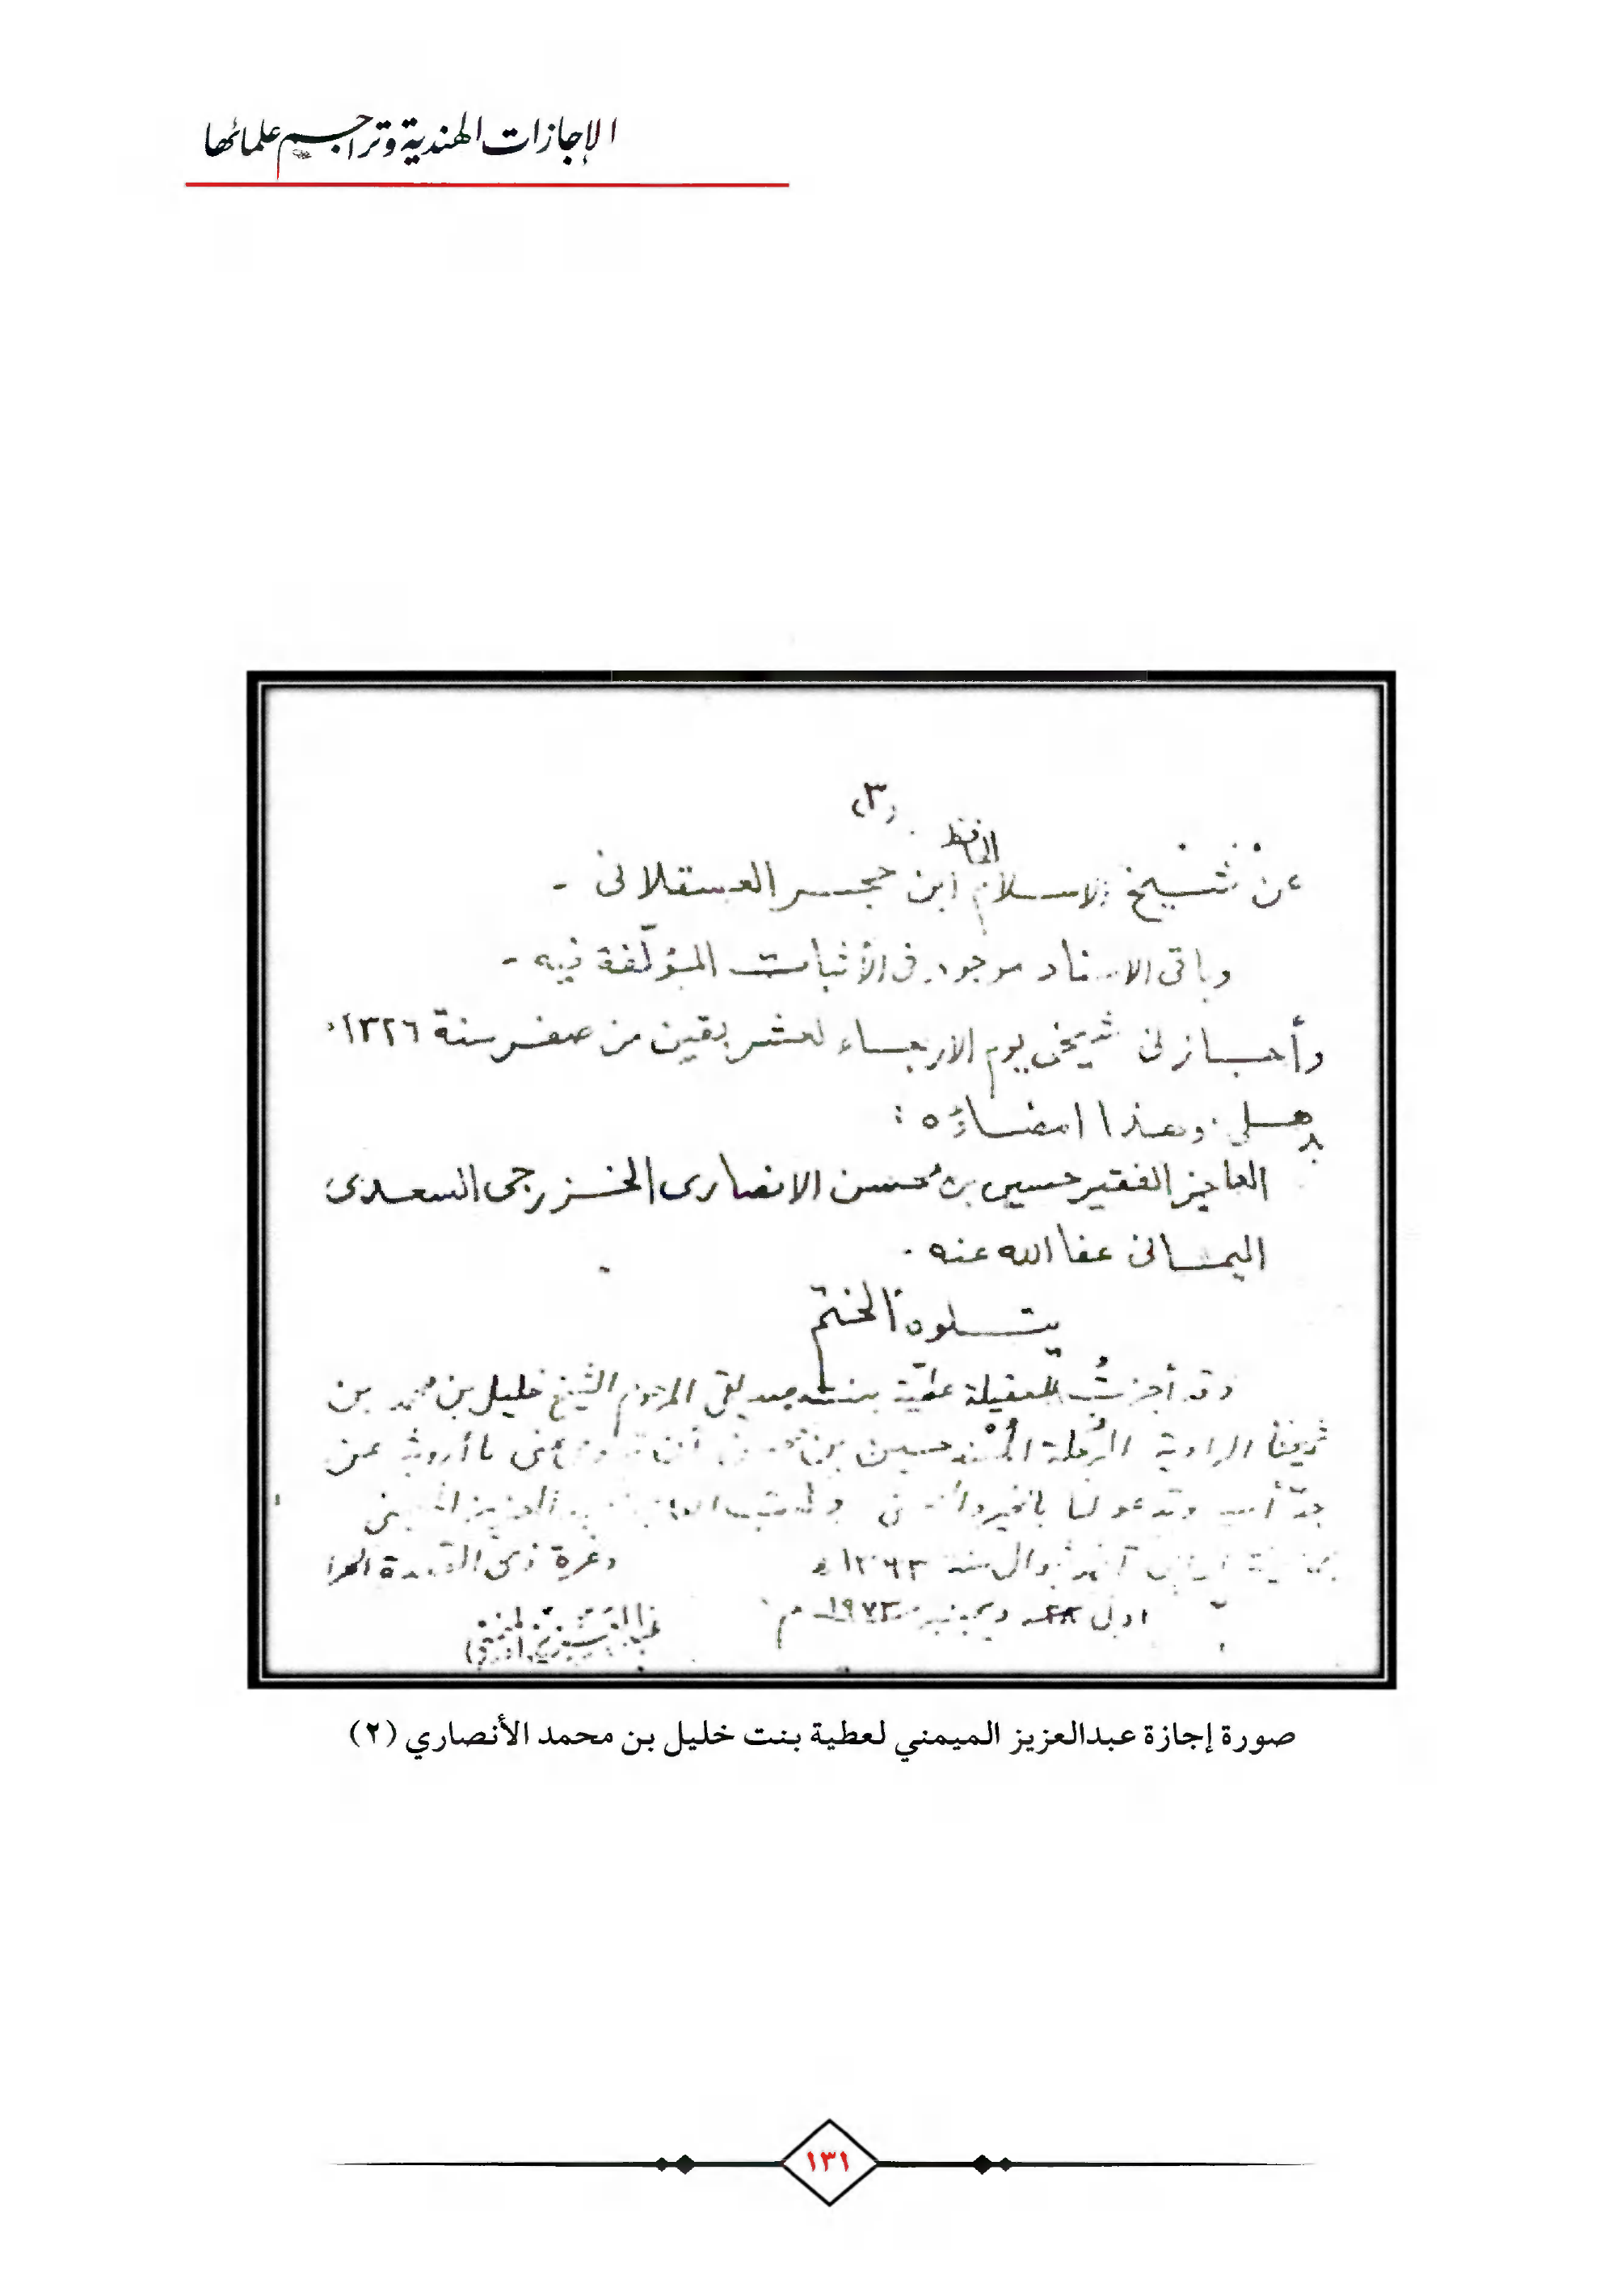 الإجازات الهندية وتراجم علمائها
(٣)
الحافظ
عن شيخ الاسلام ابن حجر العسقلانى -
وباقى الاسناد موجود فى الأثبات المؤلّفة فيه -
وأجاز لى شيخى يوم الاربعاء لعشر بقين من صفر سنة ١٣٢٦
بدهلى وهذا امضاؤه :
العاجز الفقير حسين بن محسن الانصارى الخزرجى السعدى
اليمانى عفا الله عنه .
يتلوه الختم
وقد أجزتُ للعقيلة عطيّة بنت صديقى المرحوم الشيخ خليل بن محمد بن
شيخنا الراوية الرُحلة المُسْند حسين بن محسن أن تروى عنى ما أرويه عن
جدّ أبيه وتدعو لنا بالخير العزيز الميمنى
شوال سنة وغرة ذى القعدة
اول ديسمبر ١٩٧٣ م
عبد العزيز الميمنى
صورة إجازة عبدالعزيز الميمني لعطية بنت خليل بن محمد الأنصاري (٢)
١٣١